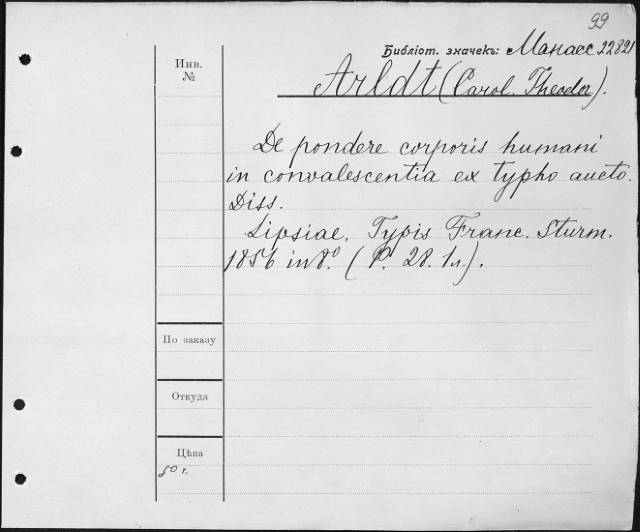 99
Библіот. значекъ: Манасс 22821
Инв.
№
Arldt (Carol. Theodor).
De pondere corporis humani
in convalescentia ex typho aucto.
Diss.
Lipsiae, Typis Franc. Sturm.
1856 in 8.º (P. 28. 1л.).
По заказу
Откуда
Цѣна
50 г.